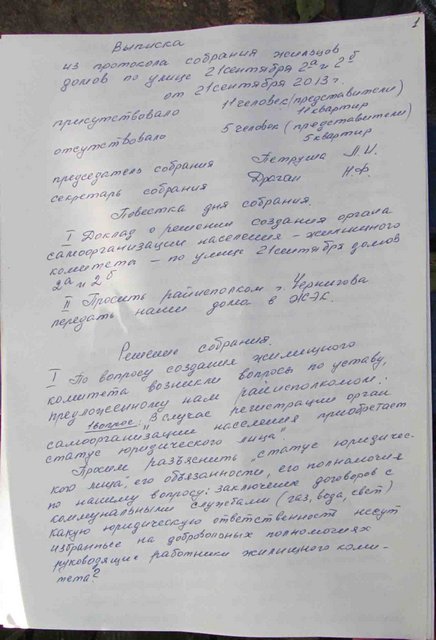 1
Выписка
из протокола собрания жильцов
домов по улице 21 сентября 2а и 2б
от 21 сентября 2013 г.
присутствовало 11 человек (представители)
11 квартир
отсутствовало 5 человек (представители)
5 квартир
председатель собрания Петруша Л.И.
секретарь собрания Драган Н.Ф.
Повестка дня собрания.
I Доклад о решении создания органа
самоорганизации населения - жилищного
комитета - по улице 21 сентября домов
2а и 2б
II Просить райисполком г. Чернигова
передать наши дома в ЖЭК.
Решение собрания.
I По вопросу создания жилищного
комитета возникли вопросы по уставу,
предложенному нам райисполкомом:
1 вопрос: "В случае регистрации орган
самоорганизации населения приобретает
статус юридического лица"
Просим разъяснить "статус юридичес-
кого лица" его обязанности, его полномочия
по нашему вопросу: заключение договоров с
коммунальными службами (газ, вода, свет)
какую юридическую ответственность несут
избранные на добровольных полномочиях
руководящие работники жилищного коми-
тета?